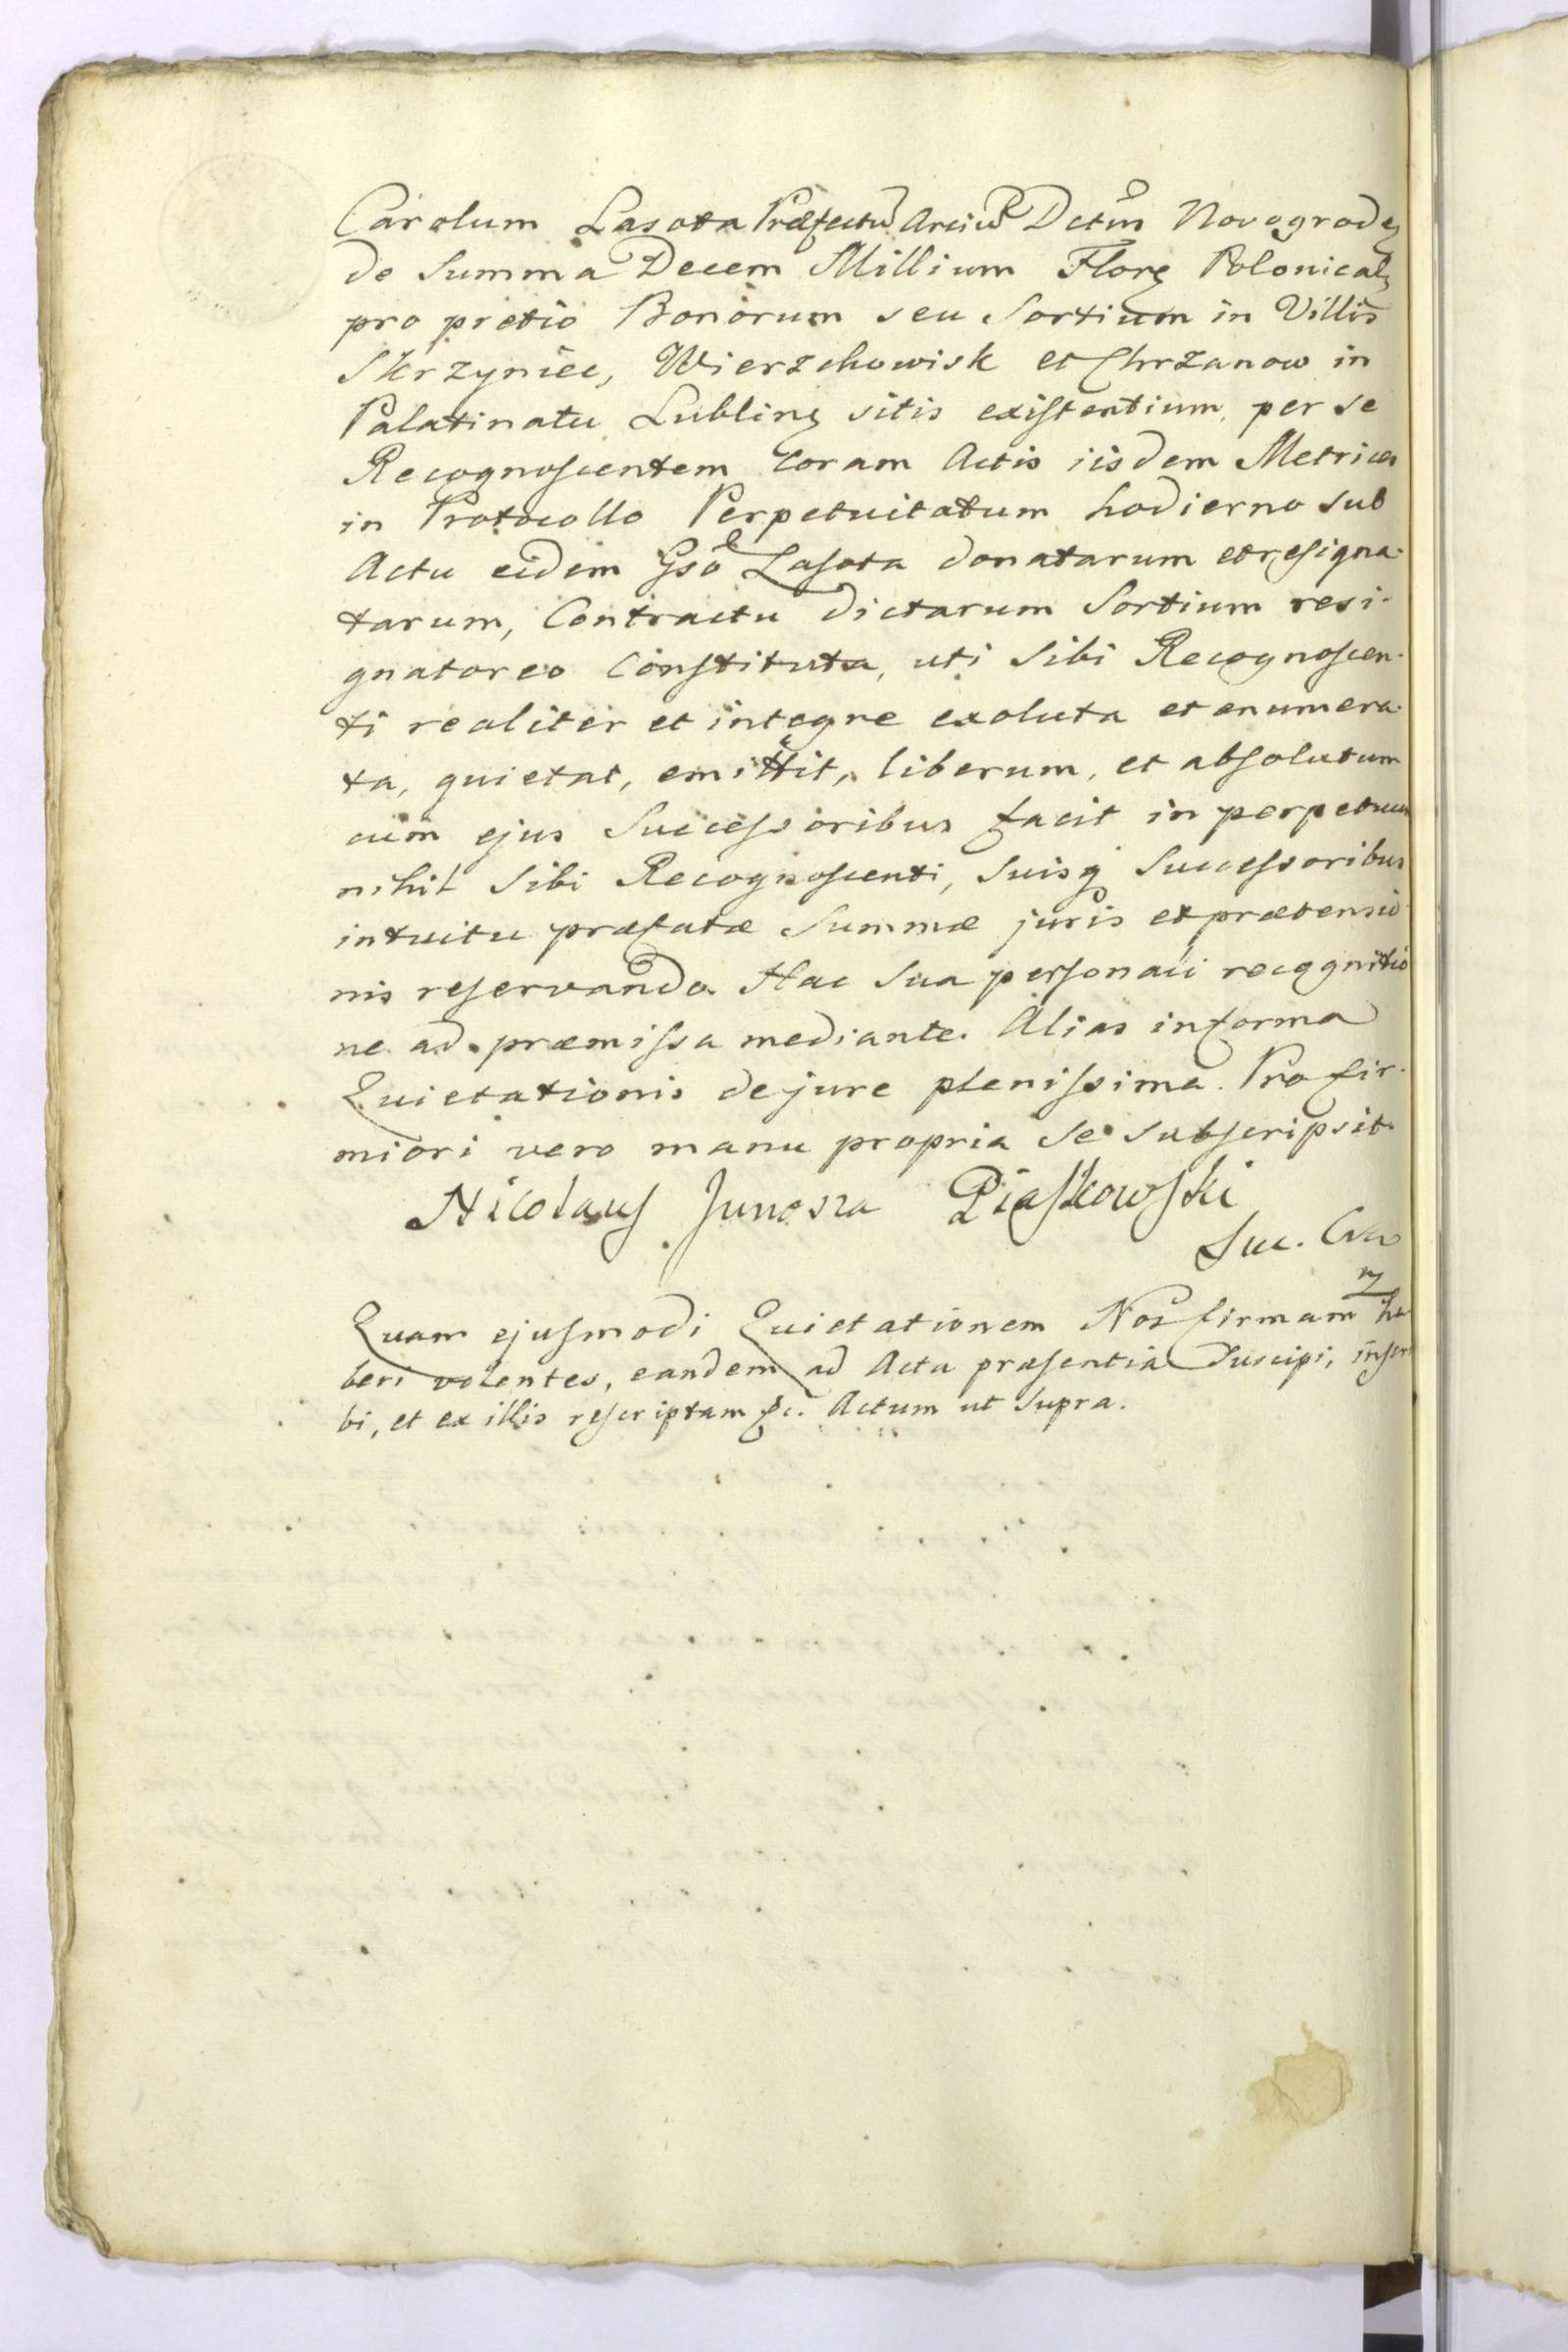 Carolum Lasota Præfectũ Arciũ Dctũs Novogrodẹ
de Summa Decem Millium Flore Polonical
pro pretio Bonorum seu Sortium in Villis
Skrzyniec, Wierzchowisk et Chrzanow in
Palatinatu Lubling sitis existentium per se
Recognoscentem coram Actis iisdem Metrices
in Protocollo Perpetuitatum hodierno sub
Actu eidem Gso Lasota donatarum et resigna-
tarum, Contractu dictarum Sortium resi-
gnatoreo Constituta, uti Sibi Recognoscen-
ti realiter et integre exoluta et enumera-
ta, quietat, emittit, liberum, et absolutum
cum ejus Successoribus facit in perpetuum
nihil Sibi Recognoscenti, Suisq Successoribus
intuitu præfatæ Summæ juris et prætensio
nis reservando. Hac Sua personali recognitio
ne ad præmissa mediante. Alias in forma
Quietationis de jure plenissima. Pro fir-
miori vero manu propria se subscripsit.
Nicolaus Junosza Piaskowski
Suc. Crz
Quam ejusmodi Quietationem Nos firmam ha
beri volentes, eandem ad Acta præsentia Suscipi, inscri
bi, et ex illis rescriptam &c. Actum ut Supra.